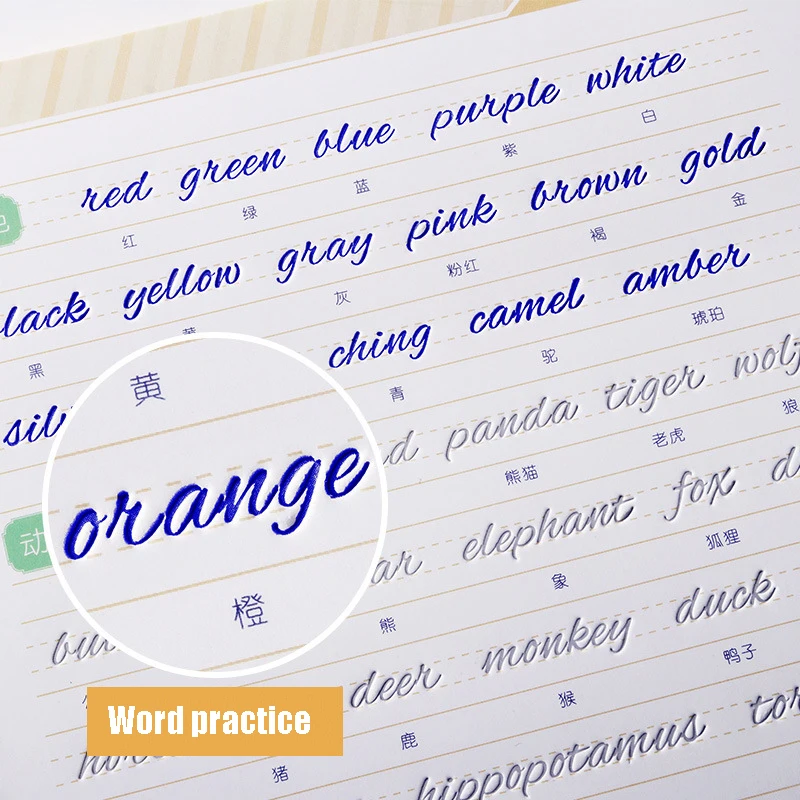 red green blue purple white
红 绿 蓝 紫 白
lack yellow gray pink brown gold
黑 灰 粉红 褐 金
sil ching camel amber
青 驼 琥珀
黄
orange
橙
panda tiger wolf
熊猫 老虎 狼
动
ar elephant fox
熊 象 狐狸
deer monkey duck
鹿 猴 鸭子
Word practice
hippopotamus tor
猪